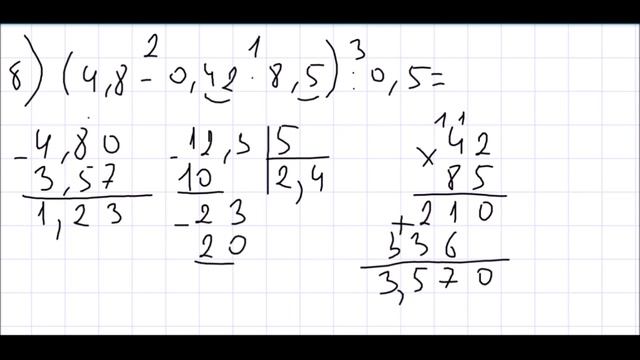 2 1 3
8) (4,8 - 0,42 · 8,5) : 0,5 =
-4,80
3,57
1,23
-12,3 | 5
10 | 2,4
-23
20
11
× 42
85
+210
336
3,570